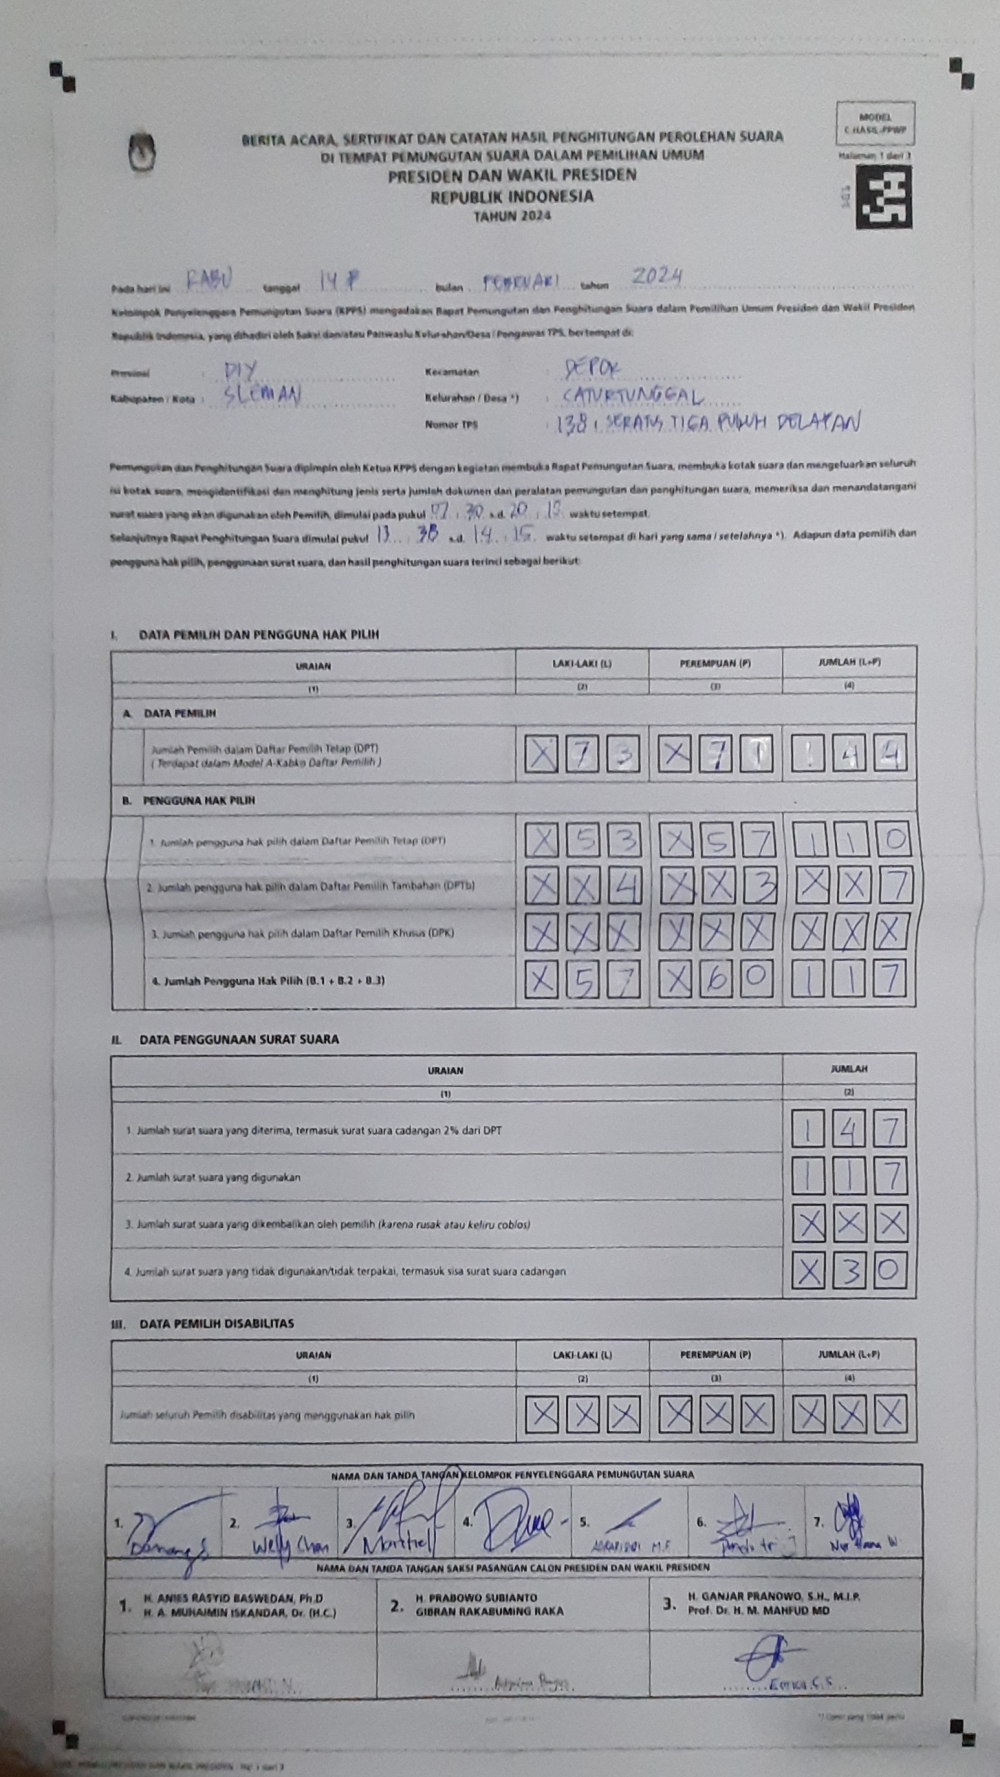 MODEL
C.HASIL-PPWP
BERITA ACARA, SERTIFIKAT DAN CATATAN HASIL PENGHITUNGAN PEROLEHAN SUARA
DI TEMPAT PEMUNGUTAN SUARA DALAM PEMILIHAN UMUM
PRESIDEN DAN WAKIL PRESIDEN
REPUBLIK INDONESIA
TAHUN 2024
Halaman 1 dari 3
Pada hari ini RABU tanggal 14 bulan FEBRUARI tahun 2024
Kelompok Penyelenggara Pemungutan Suara (KPPS) mengadakan Rapat Pemungutan dan Penghitungan Suara dalam Pemilihan Umum Presiden dan Wakil Presiden
Republik Indonesia, yang dihadiri oleh Saksi dan/atau Panwaslu Kelurahan/Desa / Pengawas TPS, bertempat di:
Provinsi : DIY Kecamatan : DEPOK
Kabupaten / Kota : SLEMAN Kelurahan / Desa *) : CATURTUNGGAL
Nomor TPS : 138 , SERATUS TIGA PULUH DELAPAN
Pemungutan dan Penghitungan Suara dipimpin oleh Ketua KPPS dengan kegiatan membuka Rapat Pemungutan Suara, membuka kotak suara dan mengeluarkan seluruh
isi kotak suara, mengidentifikasi dan menghitung jenis serta jumlah dokumen dan peralatan pemungutan dan penghitungan suara, memeriksa dan menandatangani
surat suara yang akan digunakan oleh Pemilih, dimulai pada pukul 07 : 30 s.d. 20 : 15 waktu setempat.
Selanjutnya Rapat Penghitungan Suara dimulai pukul 13 : 38 s.d. 14 : 15 waktu setempat di hari yang sama / setelahnya *). Adapun data pemilih dan
pengguna hak pilih, penggunaan surat suara, dan hasil penghitungan suara terinci sebagai berikut:
I. DATA PEMILIH DAN PENGGUNA HAK PILIH
URAIAN LAKI-LAKI (L) PEREMPUAN (P) JUMLAH (L+P)
(1) (2) (3) (4)
A. DATA PEMILIH
Jumlah Pemilih dalam Daftar Pemilih Tetap (DPT) X 7 3 X 7 1 1 4 4
( Terdapat dalam Model A-Kabko Daftar Pemilih )
B. PENGGUNA HAK PILIH
1. Jumlah pengguna hak pilih dalam Daftar Pemilih Tetap (DPT) X 5 3 X 5 7 1 1 0
2. Jumlah pengguna hak pilih dalam Daftar Pemilih Tambahan (DPTb) X X 4 X X 3 X X 7
3. Jumlah pengguna hak pilih dalam Daftar Pemilih Khusus (DPK) X X X X X X X X X
4. Jumlah Pengguna Hak Pilih (B.1 + B.2 + B.3) X 5 7 X 6 0 1 1 7
II. DATA PENGGUNAAN SURAT SUARA
URAIAN JUMLAH
(1) (2)
1. Jumlah surat suara yang diterima, termasuk surat suara cadangan 2% dari DPT 1 4 7
2. Jumlah surat suara yang digunakan 1 1 7
3. Jumlah surat suara yang dikembalikan oleh pemilih (karena rusak atau keliru coblos) X X X
4. Jumlah surat suara yang tidak digunakan/tidak terpakai, termasuk sisa surat suara cadangan X 3 0
III. DATA PEMILIH DISABILITAS
URAIAN LAKI-LAKI (L) PEREMPUAN (P) JUMLAH (L+P)
(1) (2) (3) (4)
Jumlah seluruh Pemilih disabilitas yang menggunakan hak pilih X X X X X X X X X
NAMA DAN TANDA TANGAN KELOMPOK PENYELENGGARA PEMUNGUTAN SUARA
1. 2. 3. 4. 5. 6. 7.
Danang S Welly Chan
NAMA DAN TANDA TANGAN SAKSI PASANGAN CALON PRESIDEN DAN WAKIL PRESIDEN
1. H. ANIES RASYID BASWEDAN, Ph.D
H. A. MUHAIMIN ISKANDAR, Dr. (H.C.)
2. H. PRABOWO SUBIANTO
GIBRAN RAKABUMING RAKA
3. H. GANJAR PRANOWO, S.H., M.I.P.
Prof. Dr. H. M. MAHFUD MD
Erika C.S.